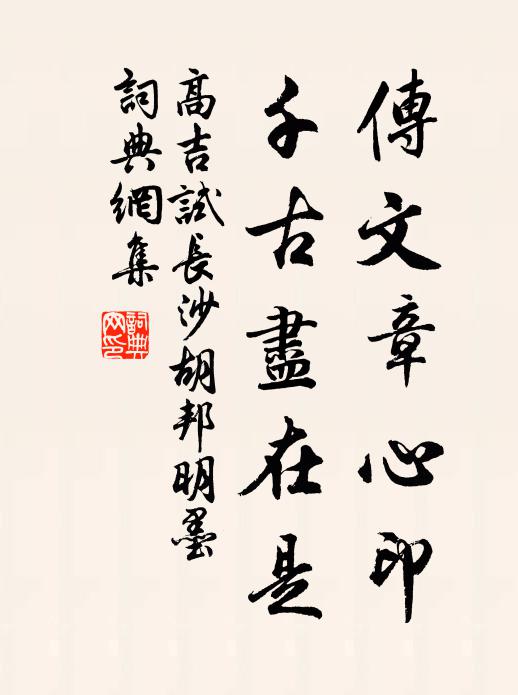 傳文章心印
千古盡在是
高吉試長沙胡邦明墨
詞典網集
詞典網印